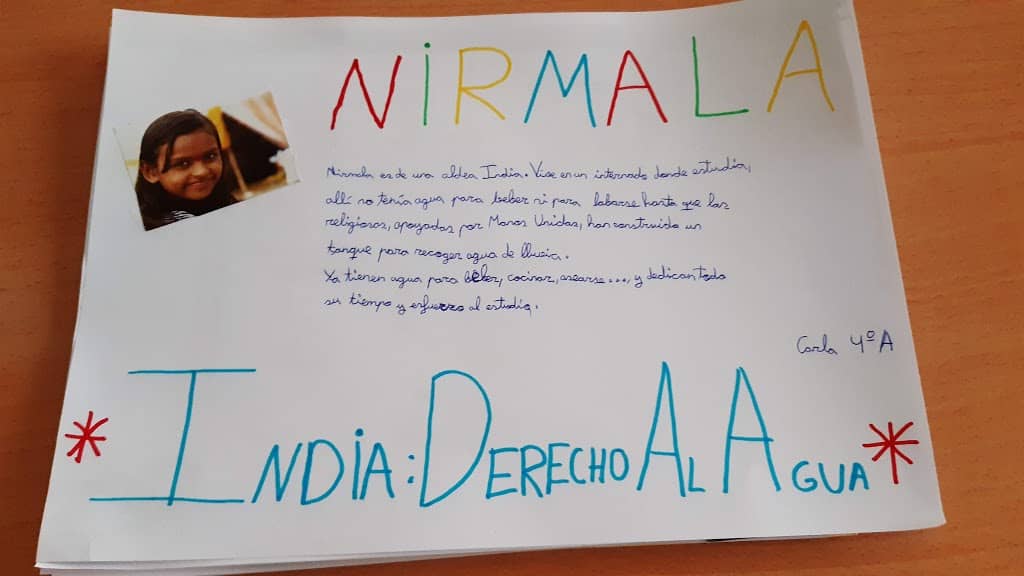 NiRMALA
Nirmala es de una aldea India. Vive en un internado donde estudia,
allí no tenía agua para beber ni para labarse hasta que las
religiosas, apoyadas por Manos Unidas, han construido un
tanque para recoger agua de lluvia.
Ya tienen agua para beber, cocinar, asearse..., y dedican todo
su tiempo y esfuerzo al estudio.
Carla 4º A
INDiA: DERECHO AL AGUA